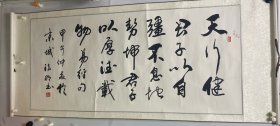 天行健
君子以自
彊不息地
勢坤君子
以厚德載
物易經句
甲午仲夏於
京城 书